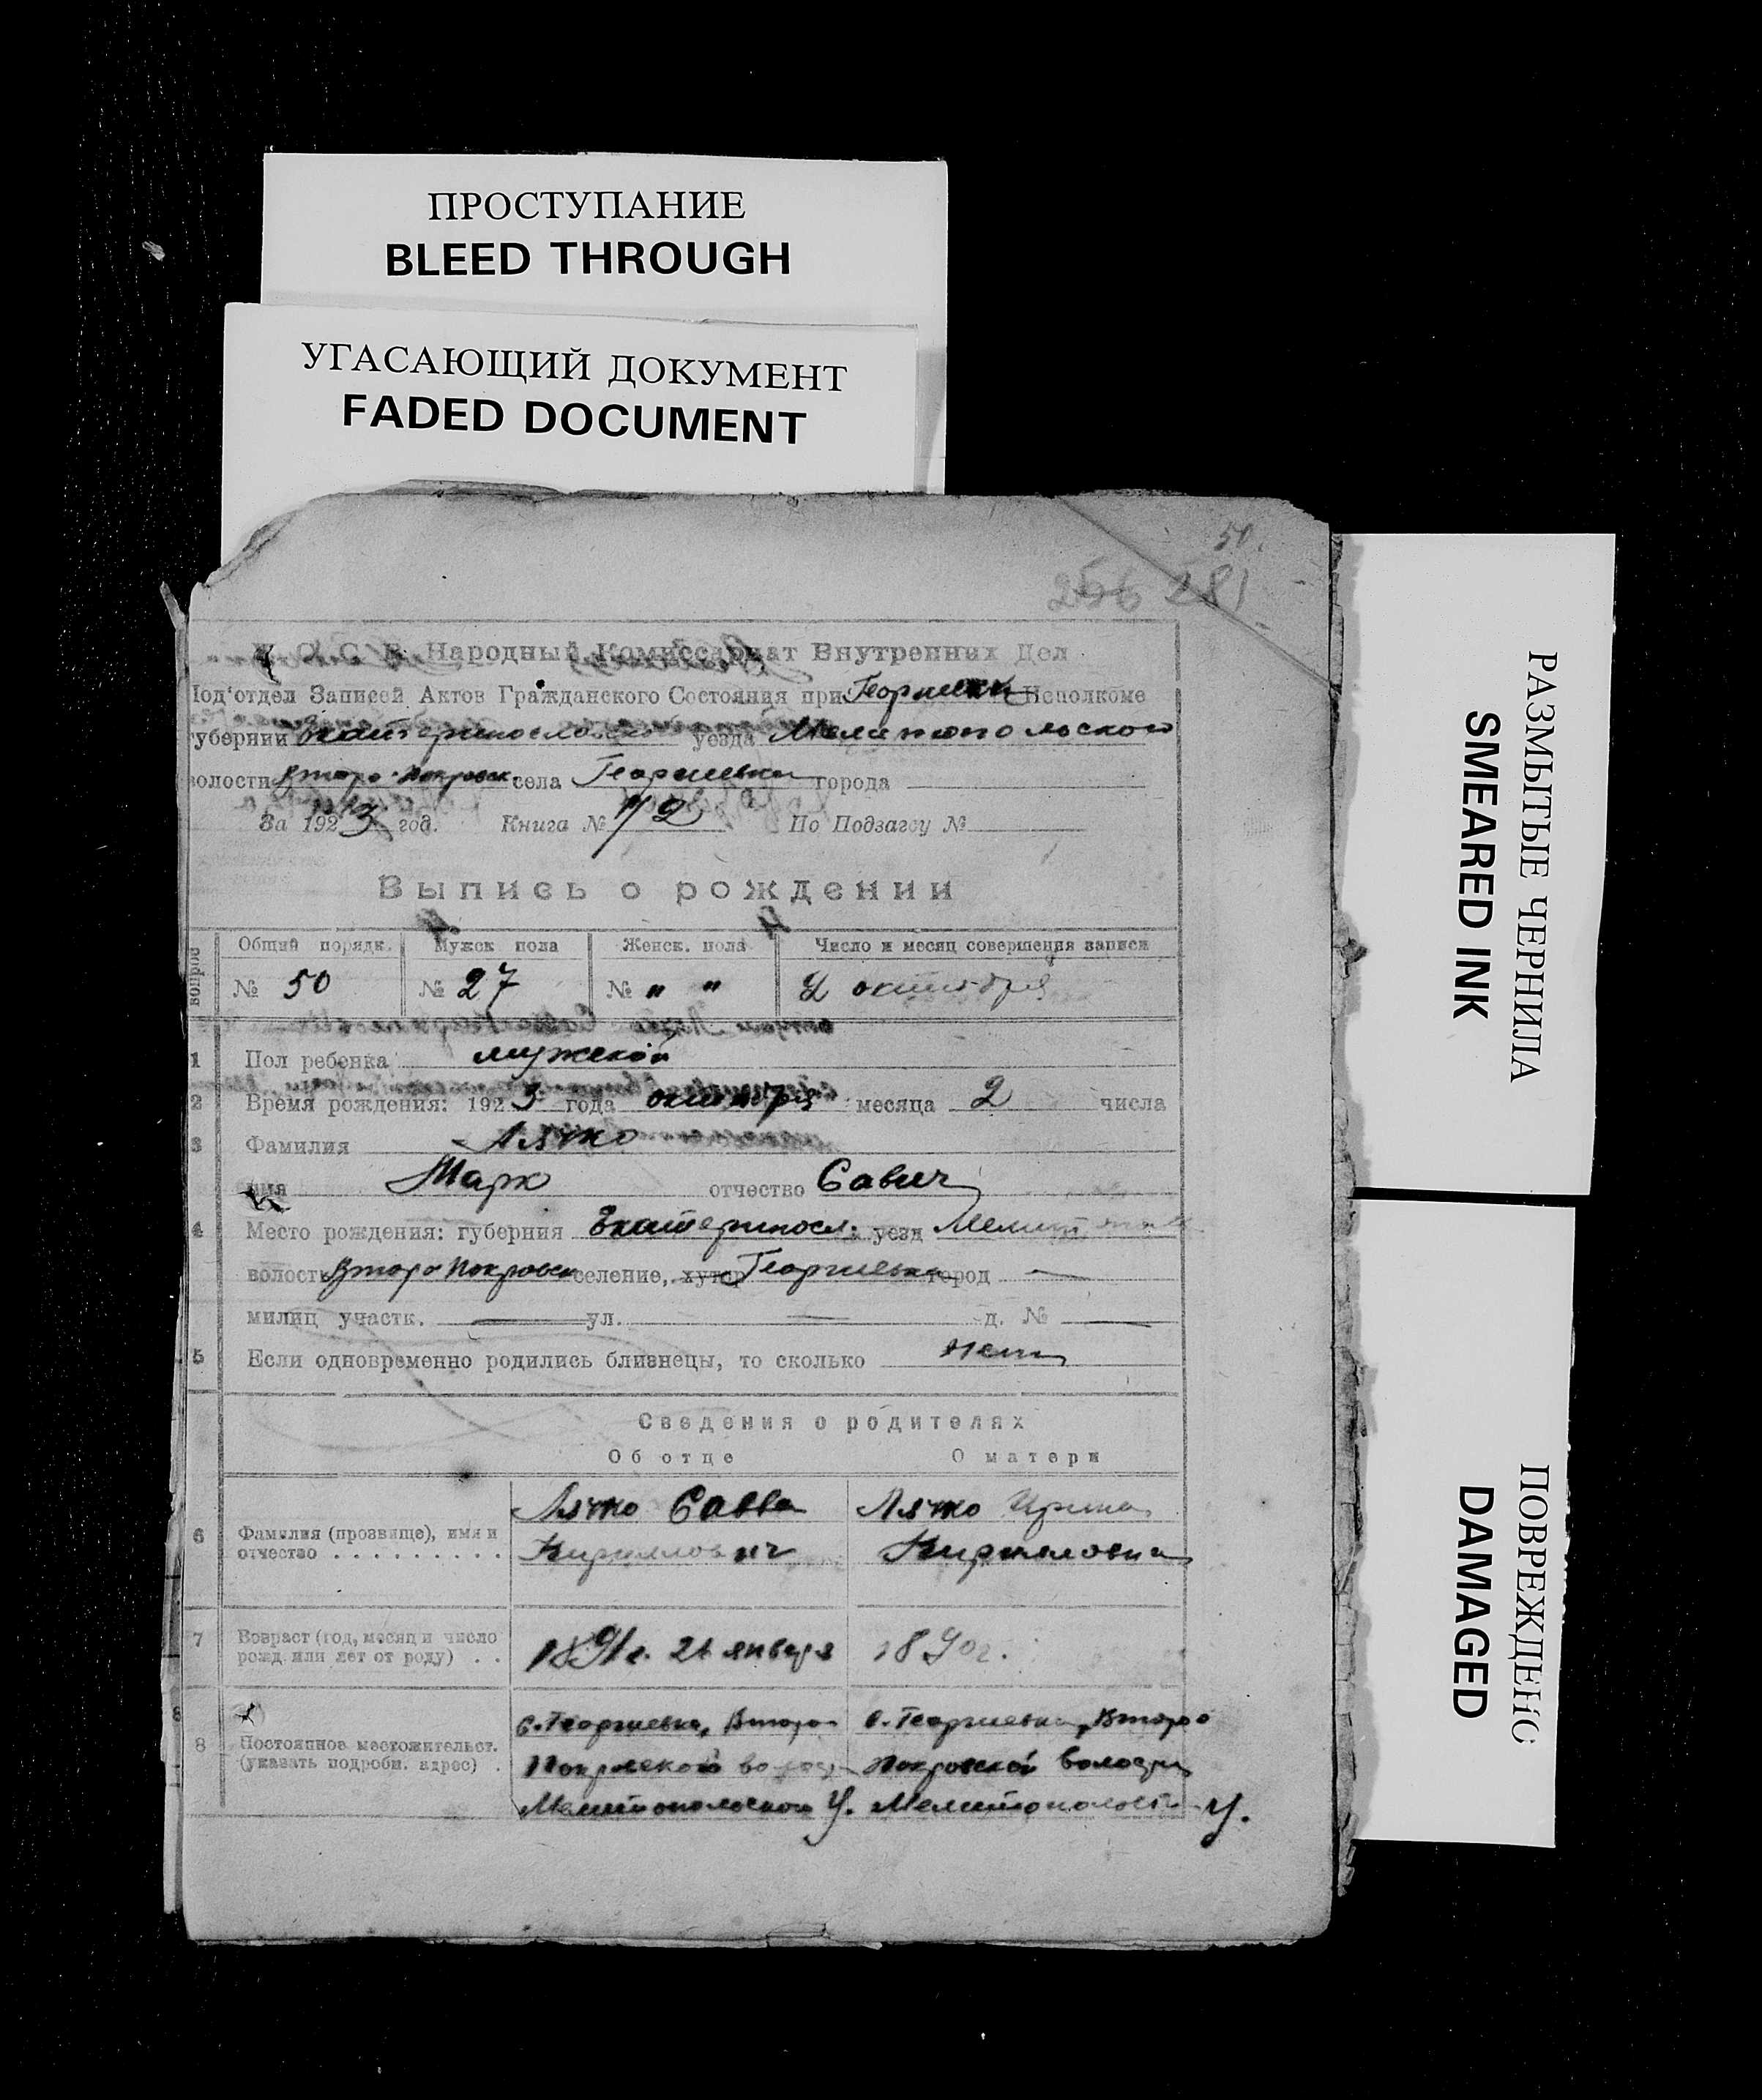 ПРОСТУПАНИЕ
BLEED THROUGH
УГАСАЮЩИЙ ДОКУМЕНТ
FADED DOCUMENT
РАЗМЫТЫЕ ЧЕРНИЛА
SMEARED INK
ПОВРЕЖДЕНО
DAMAGED
50.
256 281
У. С. С. Р. Народный Комиссариат Внутренних Дел
Под'отдел Записей Актов Гражданского Состояния при Исполкоме
губернии уезда Мелитопольского
волости Второ-Покровск. села Георгиевки города
За 1923 год. Книга № 1/2 По Подзагсу №
Выпись о рождении
вопрос Общий порядк. Мужск пола Женск. пола Число и месяц совершения записи
№ 50 № 27 № " " октября
1 Пол ребенка мужской
2 Время рождения: 1923 года октября месяца 2 числа
3 Фамилия Лячко
имя Марк отчество Савич
4 Место рождения: губерния Екатериносл. уезд
волость Второ Покровск селение, хутор Георгиевка город —
милиц участк. — ул. — д. № —
5 Если одновременно родились близнецы, то сколько нет
Сведения о родителях
Об отце О матери
6 Фамилия (прозвище), имя и отчество . . . . . . . . . Лячко Савва Лячко Ирина
Кириллович Кирилловна
7 Возраст (год, месяц и число рожд. или лет от роду) . . 1891г. 21 января 1890г.
8 Постоянное местожительст. (указать подробн. адрес) . с. Георгиевка, Второ с. Георгиевка, Второ
Покровской волости Покровской волости
Мелитопольского У. Мелитопольск У.